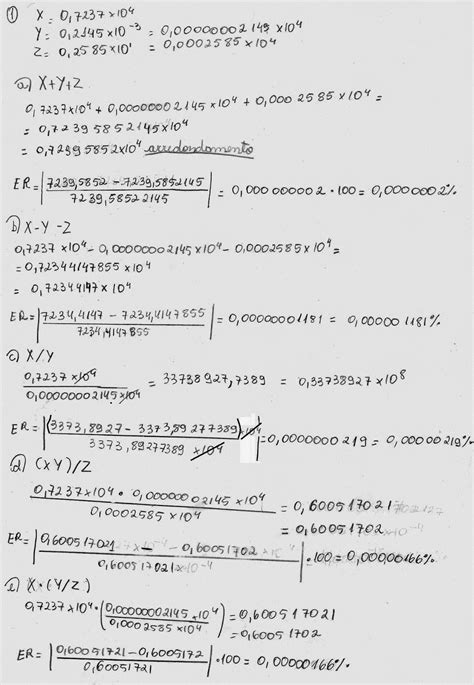 ① X = 0,7237 x 10⁴
Y = 0,2145 x 10⁻³ = 0,00000002145 x 10⁴
Z = 0,2585 x 10¹ = 0,0002585 x 10⁴
a) X+Y+Z
0,7237x10⁴ + 0,00000002145 x10⁴ + 0,0002585 x10⁴ =
= 0,72395852145x10⁴
= 0,72395852x10⁴ arredondamento
ER = |7239,5852 - 7239,5852145 / 7239,58522145| = 0,000000002 · 100 = 0,0000002%
b) X - Y - Z
0,7237 x10⁴ - 0,00000002145x10⁴ - 0,0002585x10⁴ =
= 0,72344147855 x10⁴
= 0,72344147 x 10⁴
ER = |7234,4147 - 7234,4147855 / 7234,4147855| = 0,00000001181 = 0,000001181%
c) X/Y
0,7237 x10⁴ / 0,00000002145 x10⁴ = 33738927,7389 = 0,33738927 x 10⁸
ER = |(3373,8927 - 3373,89277389) x10⁴ / 3373,89277389 x10⁴| = 0,0000000219 = 0,00000219%
d) (XY)/Z
0,7237x10⁴ · 0,00000002145 x10⁴ / 0,0002585 x10⁴ = 0,600517021
= 0,60051702
ER = |0,600517021 - 0,60051702 / 0,600517021| · 100 = 0,00000166%
e) X · (Y/Z)
0,7237x10⁴ · (0,00000002145 x10⁴ / 0,0002585 x10⁴) = 0,600517021
= 0,60051702
ER = |0,60051721 - 0,6005172 / 0,60051721| · 100 = 0,00000166%